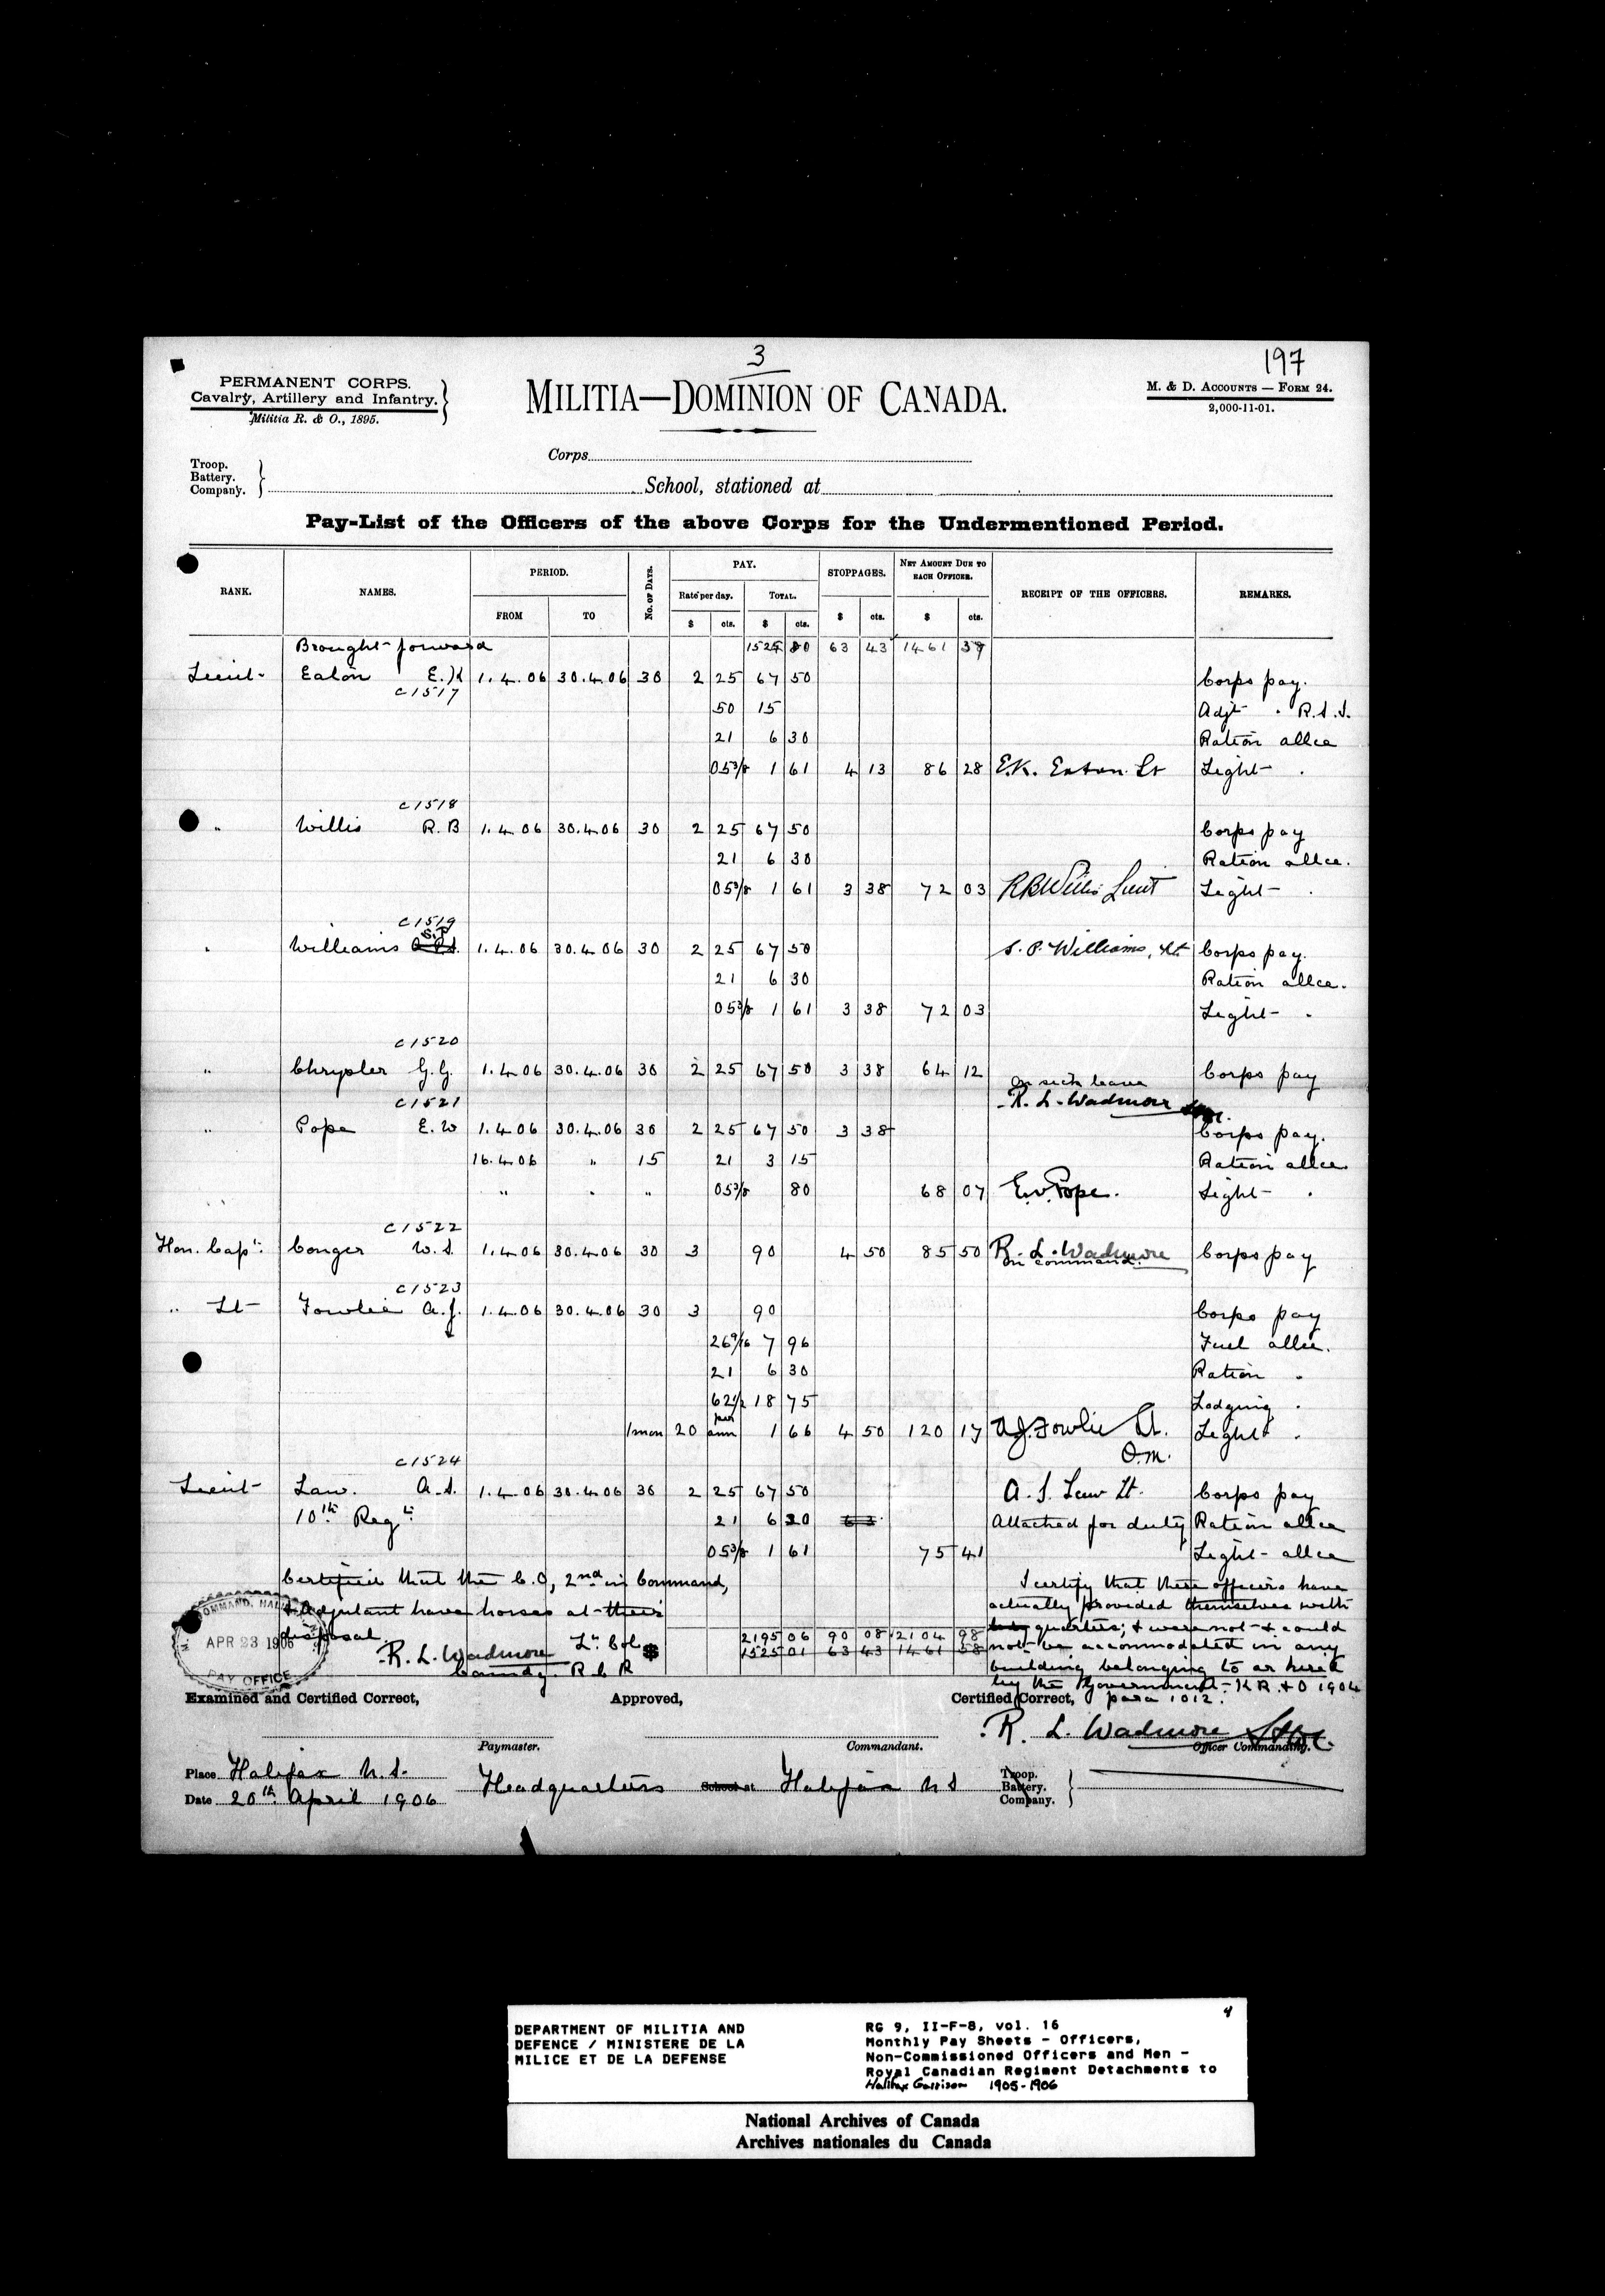 3
197
PERMANENT CORPS.
Cavalry, Artillery and Infantry.
Militia R. & O., 1895.
MILITIA—DOMINION OF CANADA.
M. & D. ACCOUNTS — FORM 24.
2,000-11-01.
Corps
Troop.
Battery.
Company.
School, stationed at
Pay-List of the Officers of the above Corps for the Undermentioned Period.
RANK. NAMES. PERIOD. No. of Days. PAY. STOPPAGES. NET AMOUNT DUE TO EACH OFFICER. RECEIPT OF THE OFFICERS. REMARKS.
FROM TO Rate per day. TOTAL.
$ cts. $ cts. $ cts. $ cts.
Brought forward 80 63 43 1461
Lieut. Eaton E.K 1.4.06 30.4.06 30 2 25 67 50 Corps pay.
C1517
50 15 Adjt " R.S.I.
21 6 30 Ration allce
05 3/8 1 61 4 13 86 28 E.K. Eaton. Lt Light "
C1518
" Willis R.B 1.4.06 30.4.06 30 2 25 67 50 Corps pay
21 6 30 Ration allce.
05 3/8 1 61 3 38 72 03 RBWillis Lieut Light "
C1519
S.P
" Williams 1.4.06 30.4.06 30 2 25 67 50 S. P. Williams, Lt. Corps pay.
21 6 30 Ration allce.
05 3/8 1 61 3 38 72 03 Light "
C1520
" Chrysler G.G. 1.4.06 30.4.06 30 2 25 67 50 3 38 64 12 Corps pay
On sick leave
C1521
R. L. Wadmore
" Pope E.W 1.4.06 30.4.06 30 2 25 67 50 3 38 Corps pay.
16.4.06 " 15 21 3 15 Ration allce
" " " 05 3/8 80 68 07 E.W Pope. Light "
C1522
Hon. Capt. Conger W.S. 1.4.06 30.4.06 30 3 90 4 50 85 50 R. L. Wadmore Corps pay
On command.
C1523
" Lt Fowlie A.J. 1.4.06 30.4.06 30 3 90 Corps pay
26 9/16 7 96 Fuel allce.
21 6 30 Ration "
62 1/2 18 75 Lodging "
1 mon 20 per ann 1 66 4 50 120 17 A.J. Fowlie Lt. Light "
Q.M.
C1524
Lieut Law. A.S. 1.4.06 30.4.06 30 2 25 67 50 A. S. Law Lt. Corps pay
10th Regt. 21 6 30 6 3 Attached for duty Ration allce
05 3/8 1 61 75 41 Light allce
Certified that the C.O, 2nd in Command,
& Adjutant have horses at their
disposal
R. L. Wadmore Lt. Col
Comndg. R C R
$ 2195 06 90 08 2104 98
1525 01 63 43 1461 58
I certify that these officers have
actually provided themselves with
quarters; & were not & could
not be accommodated in any
building belonging to or hired
by the Government - K R & O 1904
para 1012.
COMMAND, HALI
APR 23 1906
PAY OFFICE
Examined and Certified Correct, Approved, Certified Correct,
R. L. Wadmore
Paymaster. Commandant. Officer Commanding.
Place Halifax N.S.
Headquarters School at Halifax N S
Troop.
Battery.
Company.
Date 20th April 1906
4
DEPARTMENT OF MILITIA AND
DEFENCE / MINISTERE DE LA
MILICE ET DE LA DEFENSE
RG 9, II-F-8, vol. 16
Monthly Pay Sheets - Officers,
Non-Commissioned Officers and Men -
Royal Canadian Regiment Detachments to
Halifax Garrison 1905-1906
National Archives of Canada
Archives nationales du Canada